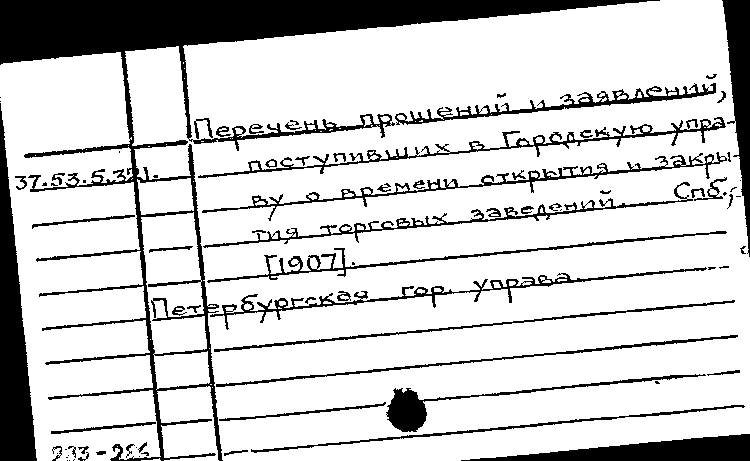 Перечень прошений и заявлений,
37.53.5.321.
поступивших в Городскую упра-
ву о времени открытия и закры-
тия торговых заведений. Спб.,
[1907].
Петербургская гор. управа.